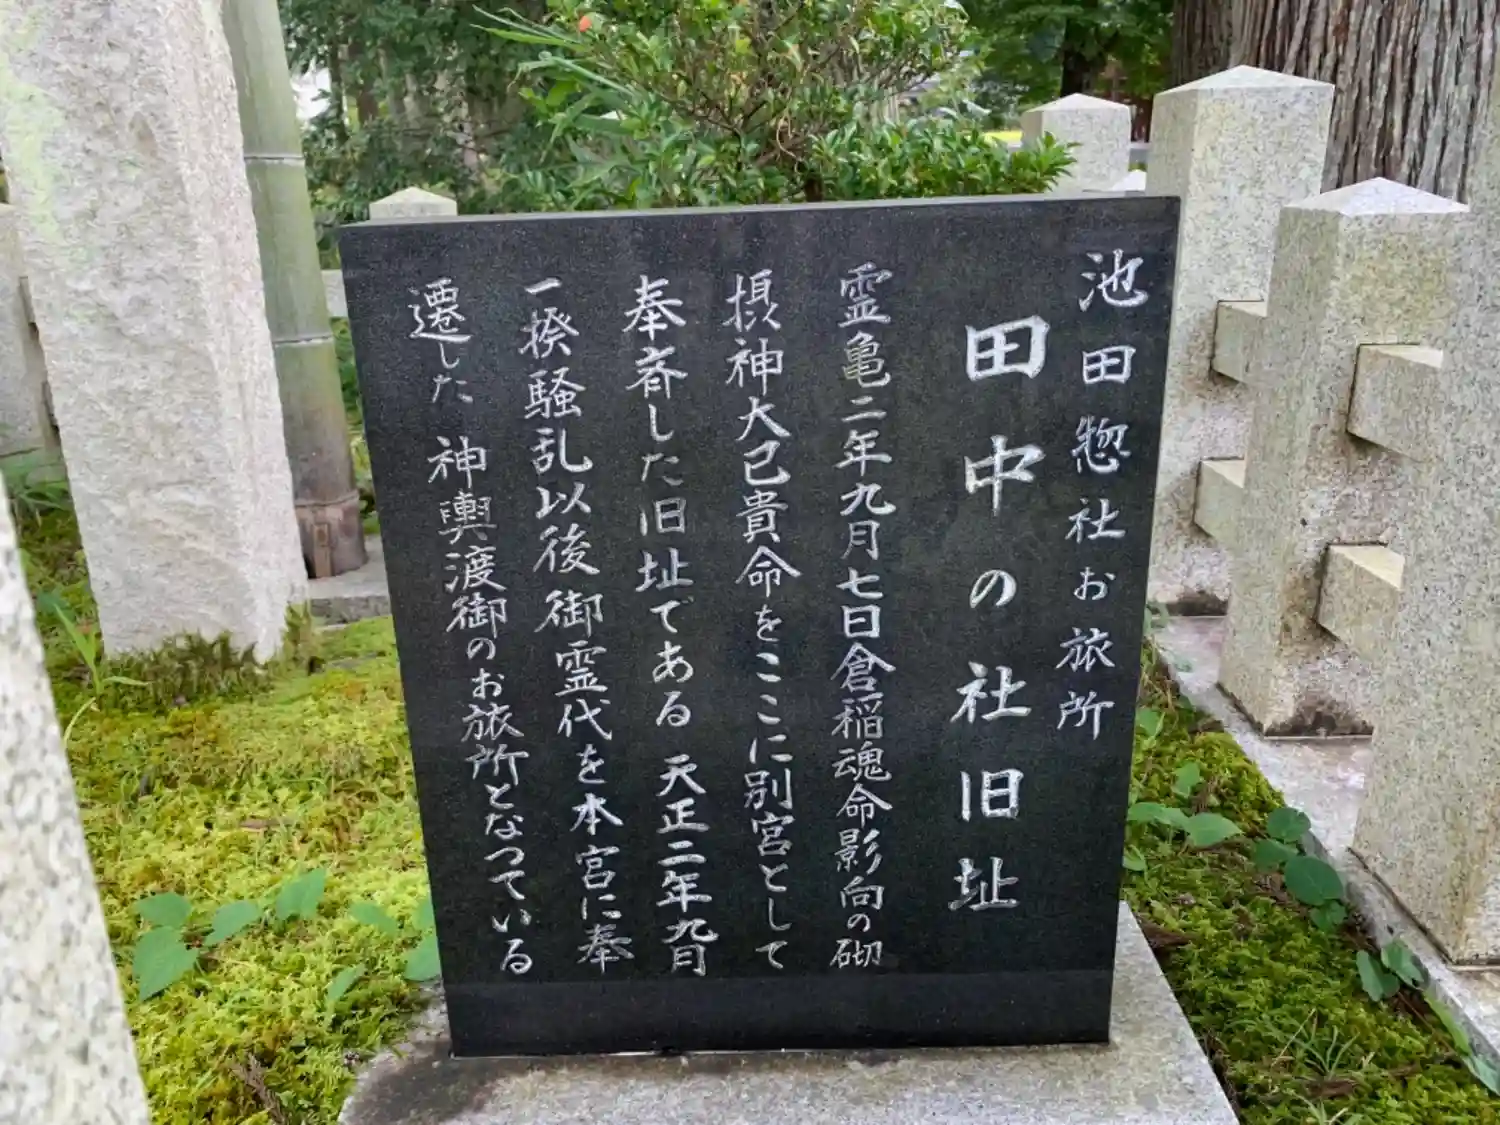 池田惣社お旅所
田中の社旧址
霊亀二年九月七日倉稲魂命影向の砌
摂神大己貴命をここに別宮として
奉斎した旧址である 天正二年九月
一揆騒乱以後御霊代を本宮に奉
遷した 神輿渡御のお旅所となつている